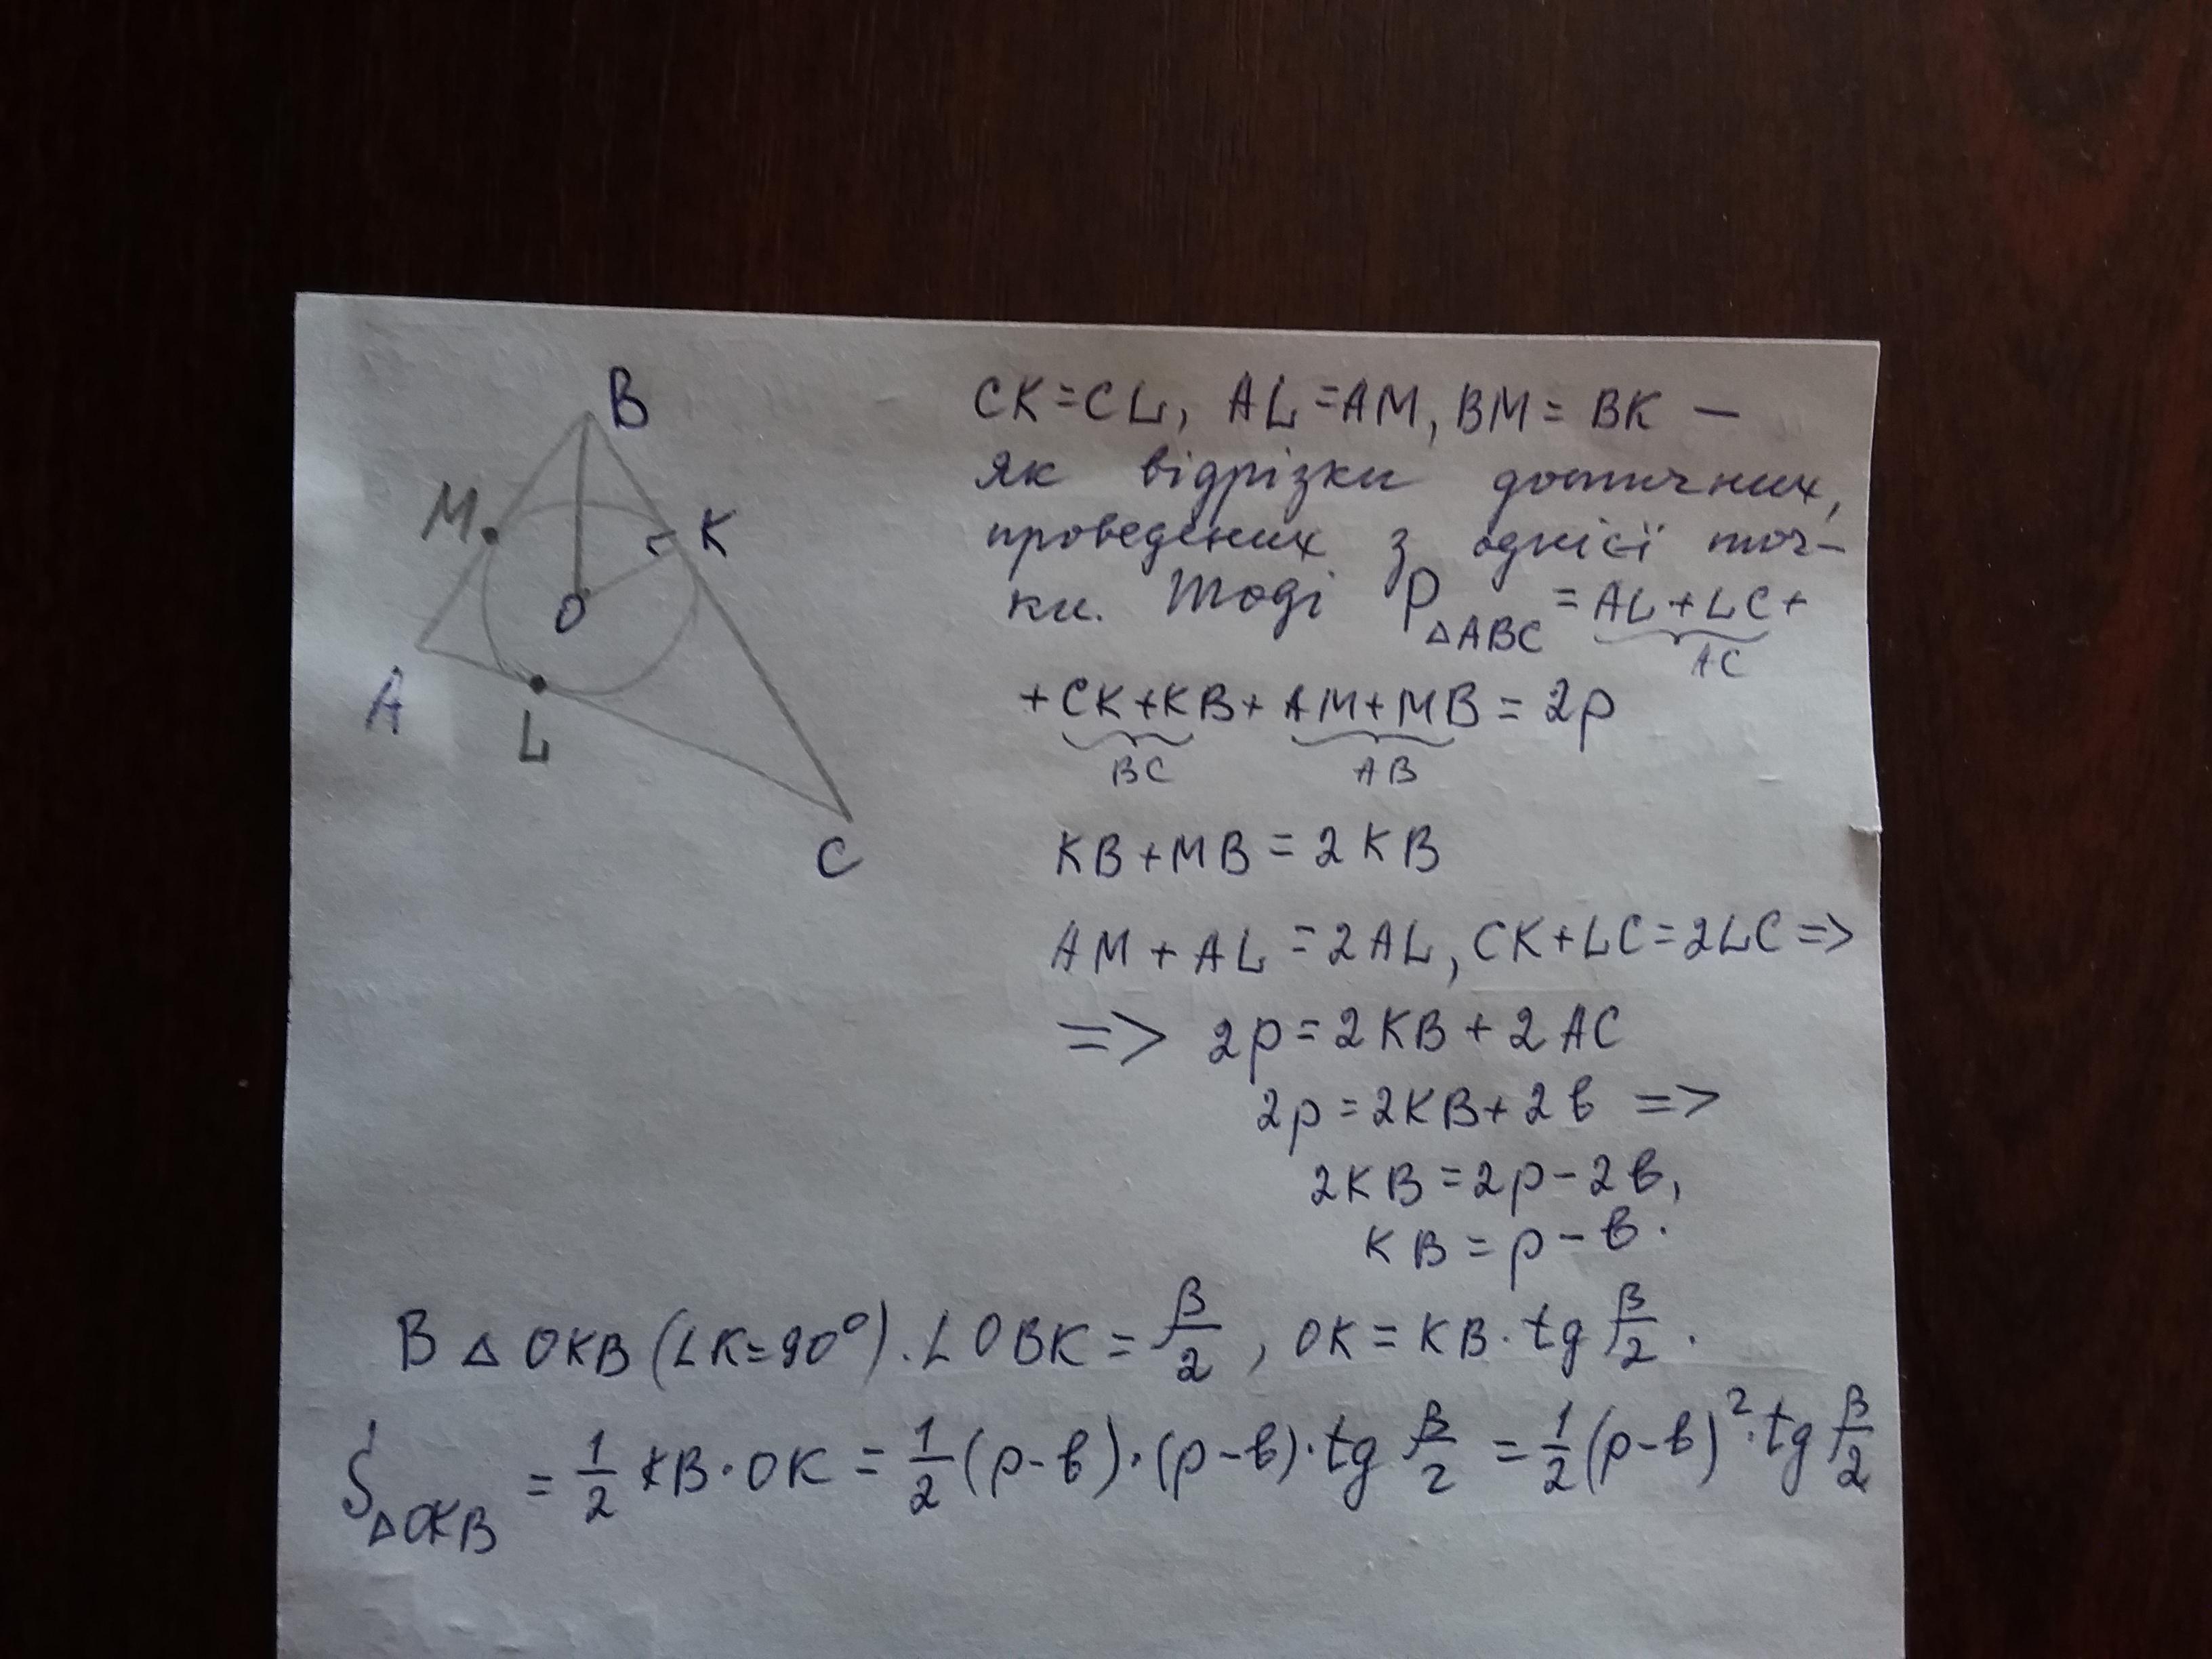 B
M
K
O
A
L
C
CK=CL, AL=AM, BM=BK —
як відрізки дотичних,
проведених з однієї точ-
ки. Тоді P△ABC = AL+LC+
AC
+CK+KB+AM+MB=2p
BC AB
KB+MB=2KB
AM+AL=2AL, CK+LC=2LC=>
=> 2p=2KB+2AC
2p=2KB+2в =>
2KB=2p-2в,
KB=p-в.
В △OKB (∠K=90°). ∠OBK = β/2, OK=KB·tg β/2.
S△OKB = 1/2 KB·OK = 1/2 (p-в)·(p-в)·tg β/2 = 1/2 (p-в)²·tg β/2